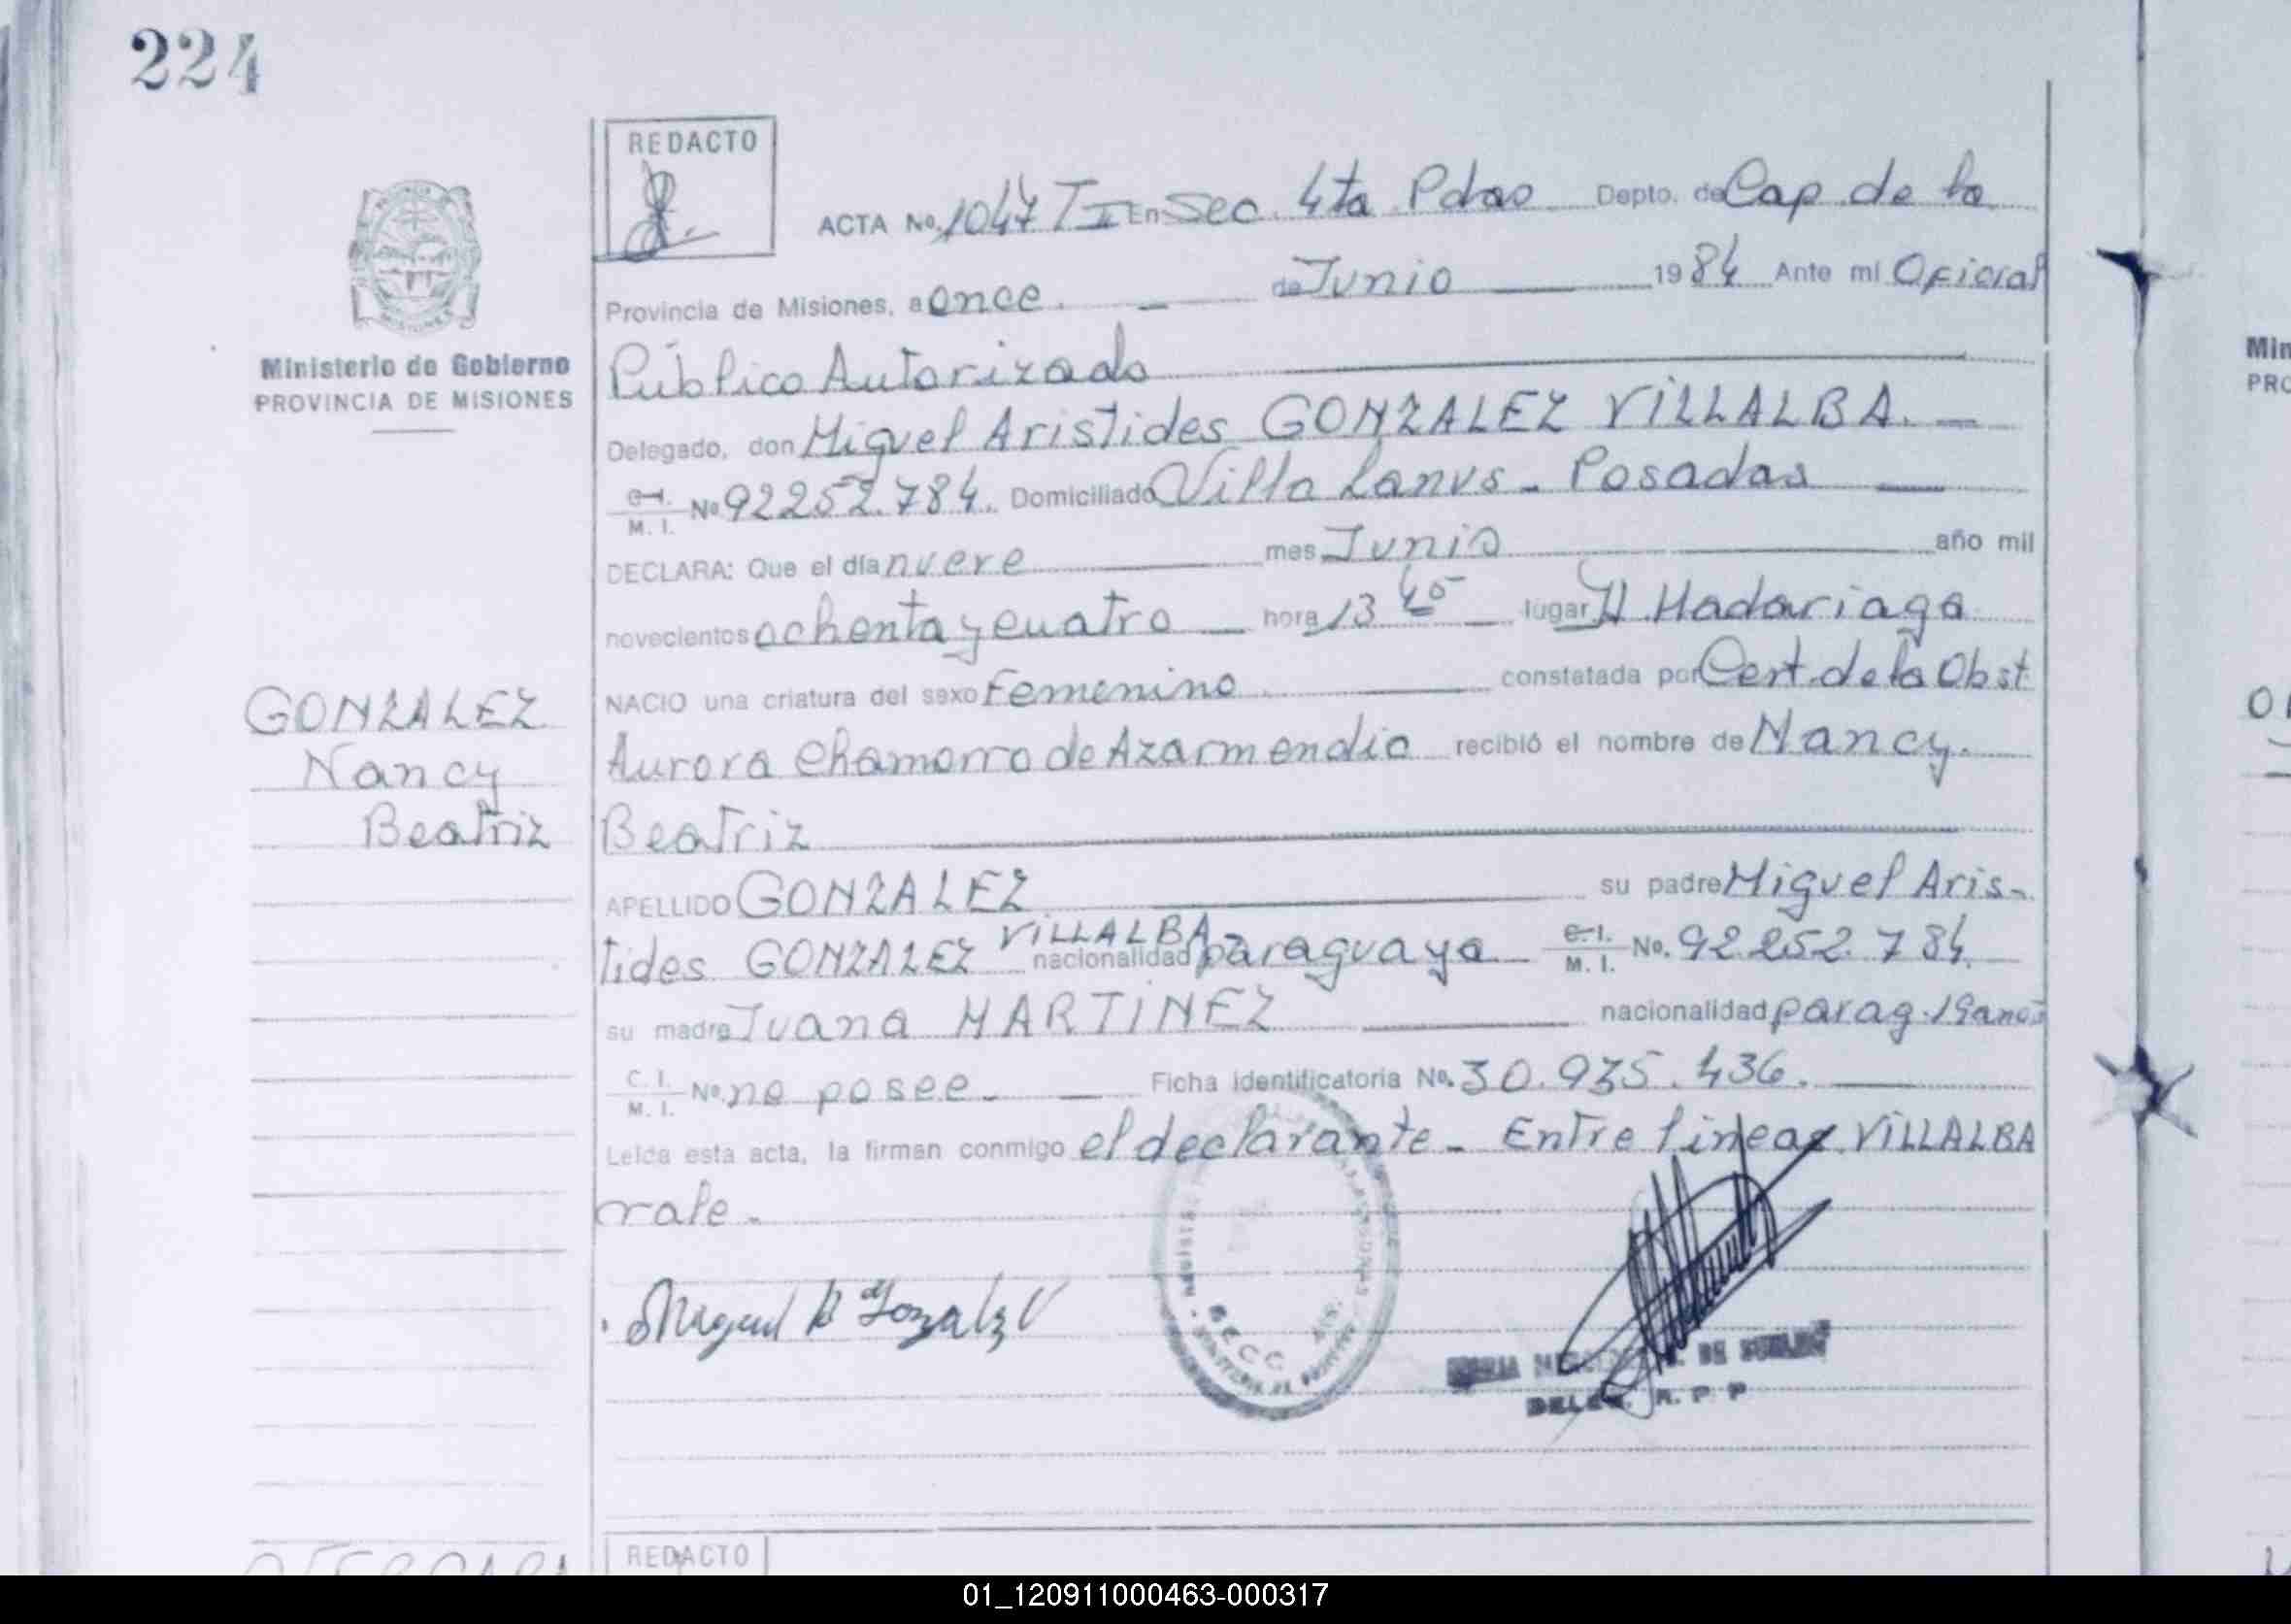 224
REDACTO
ACTA No. 1047 T II En Sec. 4ta Pdas Depto. de Cap. de la
Provincia de Misiones, a once de Junio 1984 Ante mí Oficial
Público Autorizado
Ministerio de Gobierno
PROVINCIA DE MISIONES
Delegado, don Miguel Aristides GONZALEZ VILLALBA.
C.I. M.I. No 92252.784. Domiciliado Villa Lanus - Posadas
DECLARA: Que el día nueve mes Junio año mil
novecientos ochenta y cuatro hora 13 45 lugar H. Madariaga
NACIO una criatura del sexo Femenino constatada por Cert. de la Obst
Aurora Chamorro de Azarmendia recibió el nombre de Nancy
Beatriz
GONZALEZ
Nancy
Beatriz
APELLIDO GONZALEZ su padre Miguel Aris-
tides GONZALEZ VILLALBA nacionalidad paraguaya C.I. M.I. No. 92.252.784.
su madre Juana MARTINEZ nacionalidad parag. 19 anos
C.I. M.I. No. no posee. Ficha identificatoria No. 30.935.436.
Leída esta acta, la firman conmigo el declarante - Entre lineas VILLALBA
vale.
Miguel A Gonzalez V
DE
R. P. P
REDACTO
Min
PRO
01_120911000463-000317